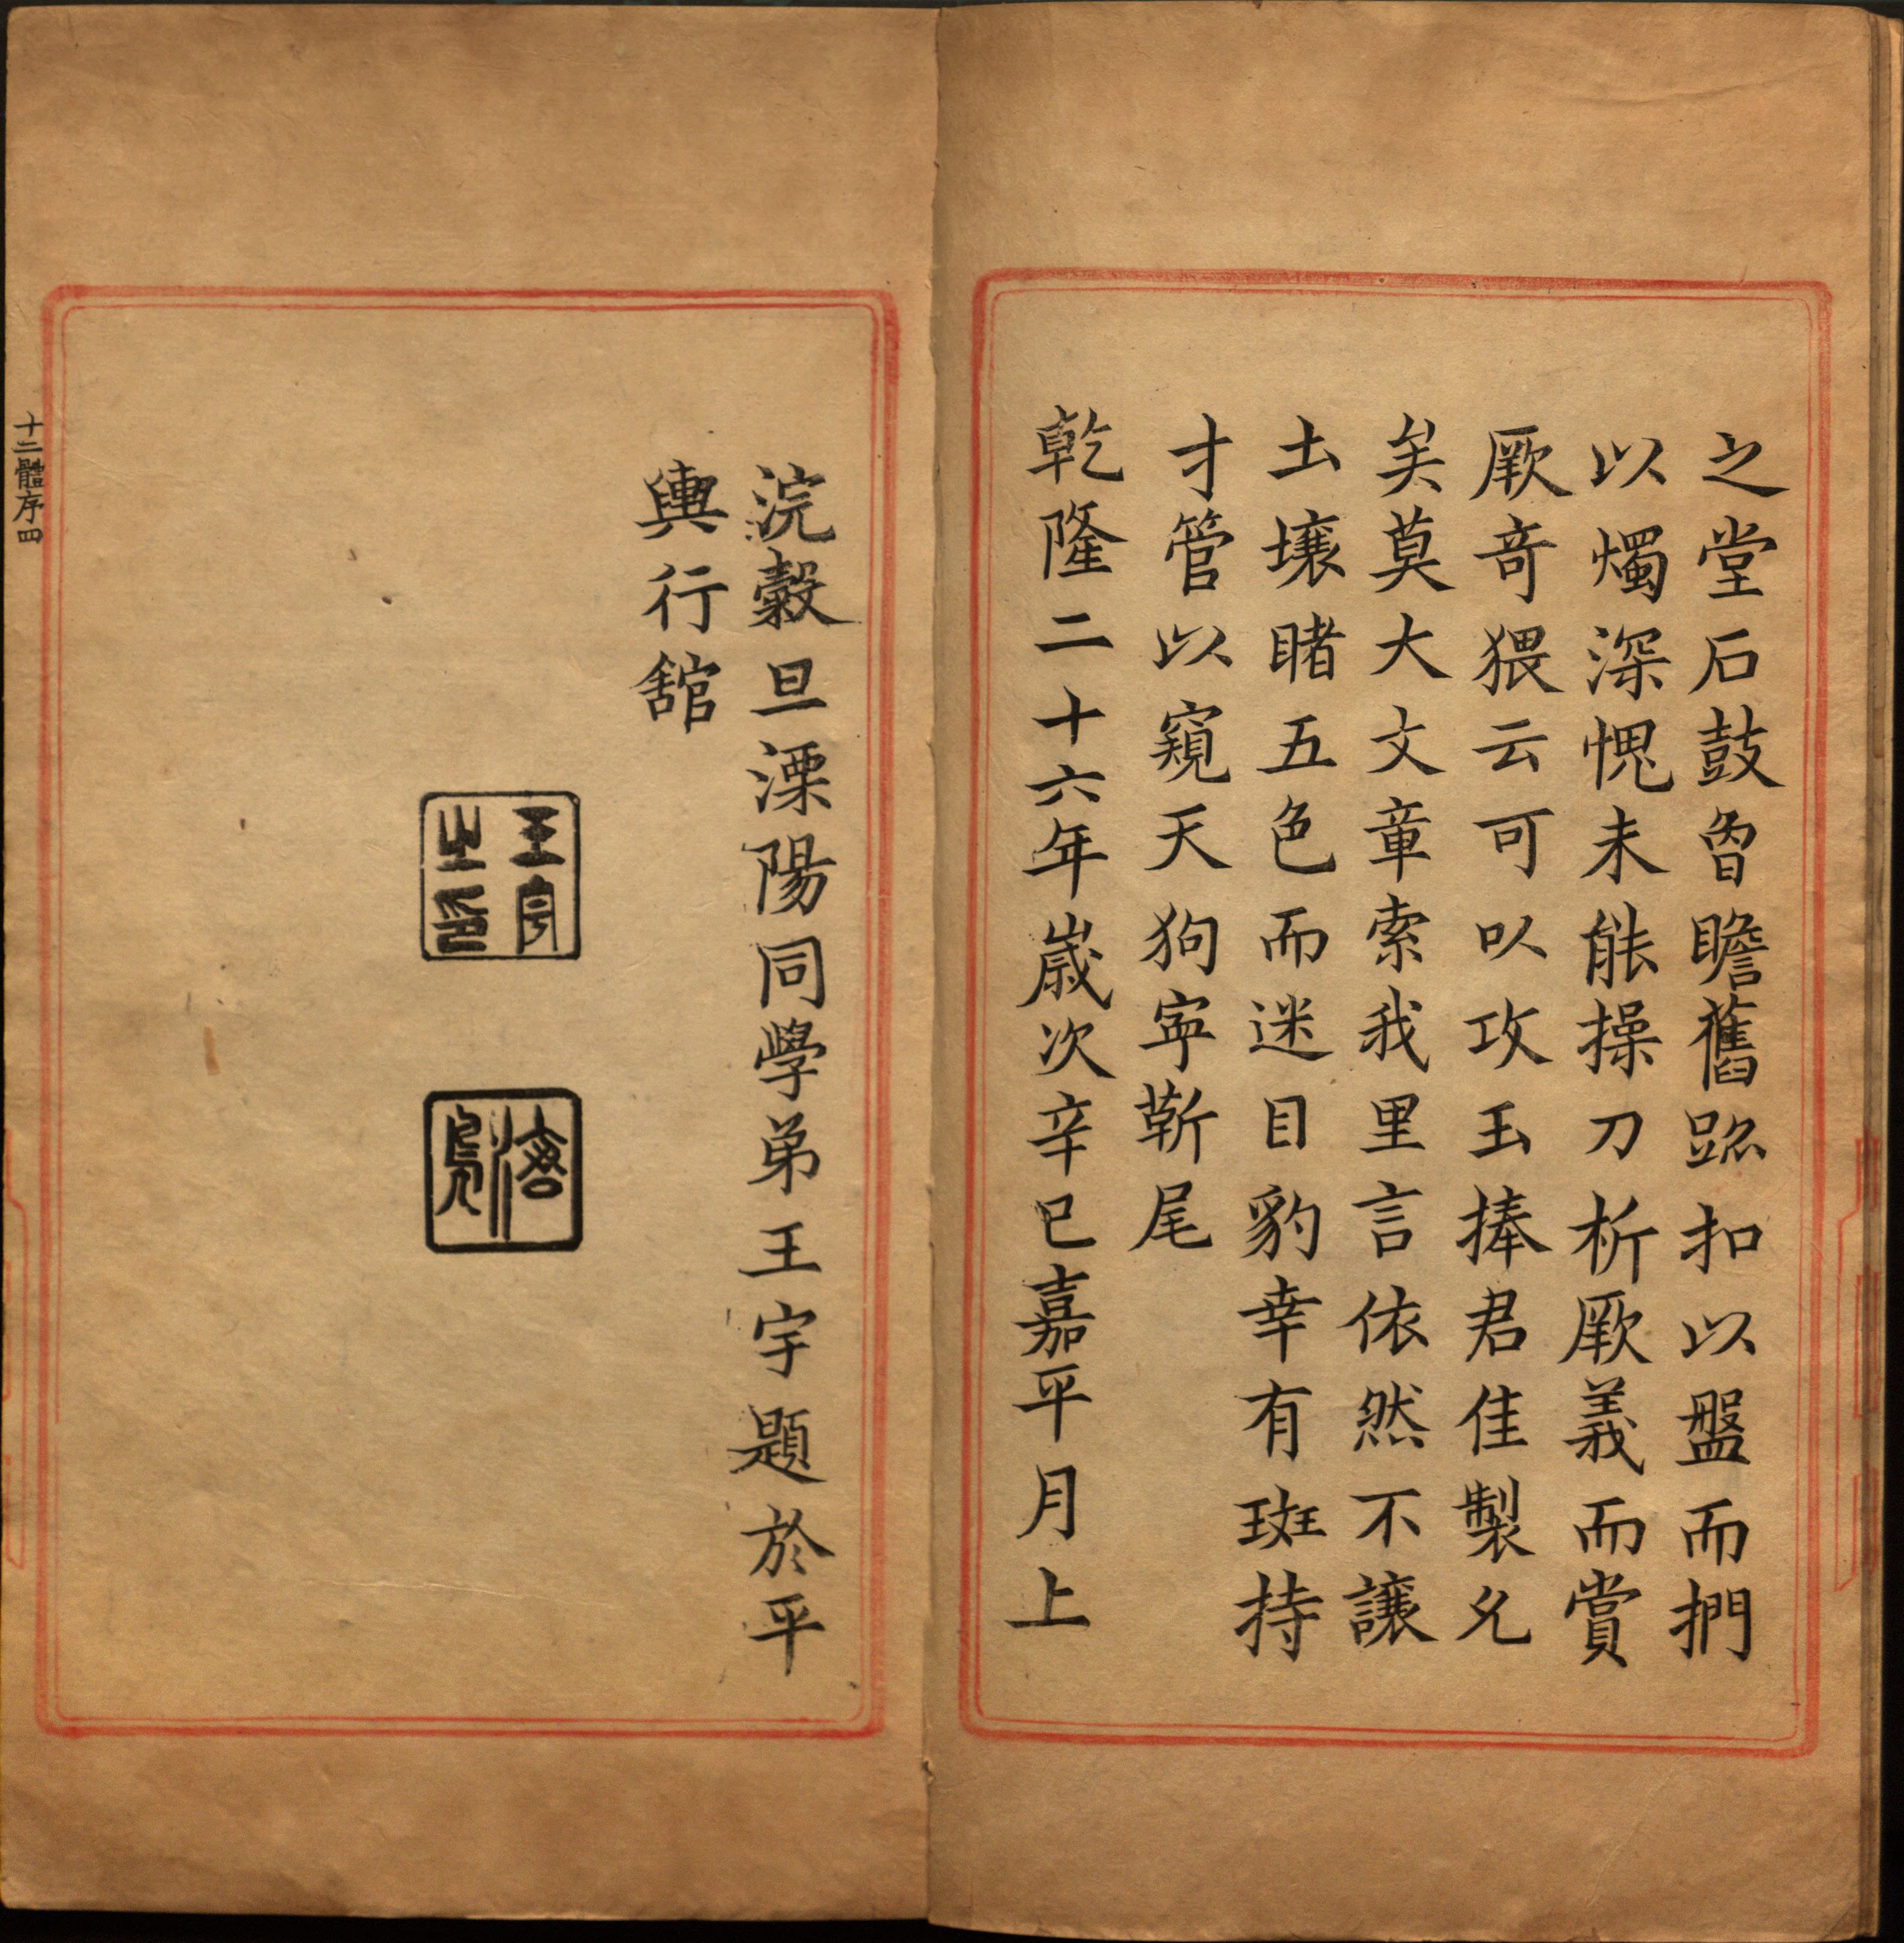 之堂后鼓曶瞻舊跡扣以盤而捫
以燭深愧未能操刀析厥義而賞
厥奇猥云可以攻玉捧君佳製允
矣莫大文章索我里言依然不讓
土壤睹五色而迷目豹幸有斑持
才管以窺天狗寧蘄尾
乾隆二十六年歲次辛巳嘉平月上
浣穀旦溧陽同學弟王宇題於平
輿行舘
王宇
之印
十二體序四